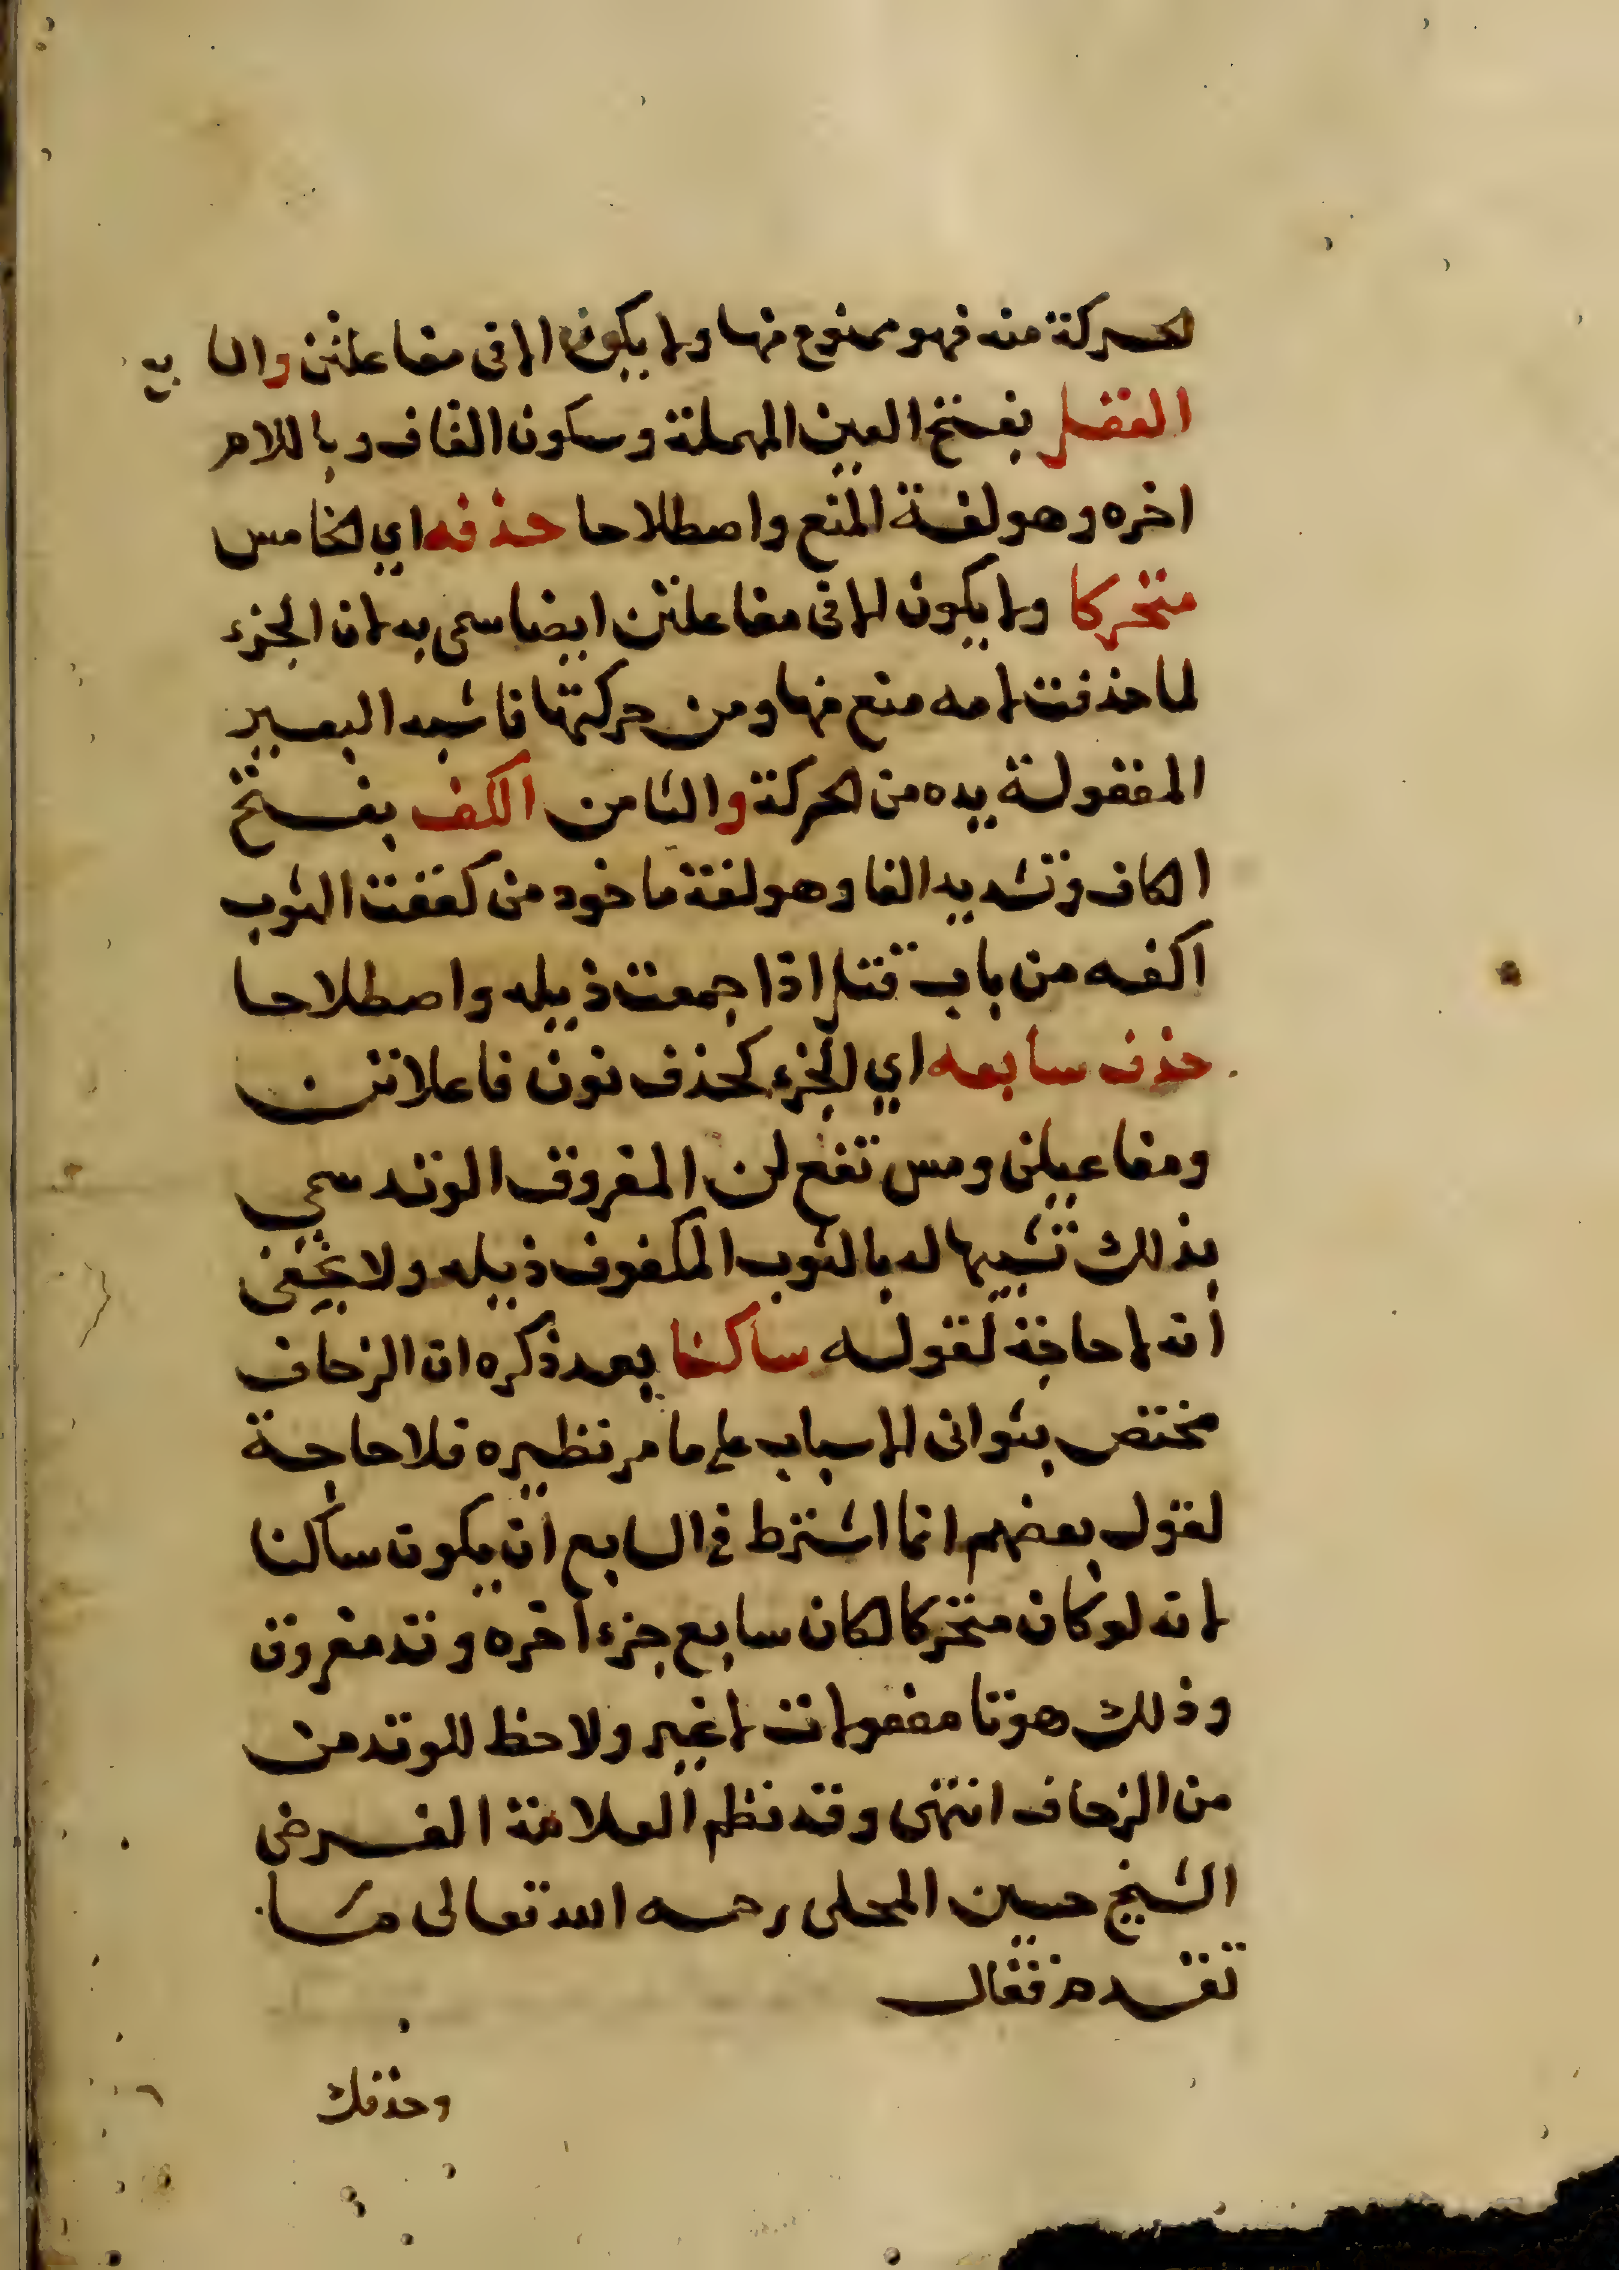 الحركة منه فهو ممنوع منها ولا يكون الا فى مفاعلتن والسابع
العقل بفتح العين المهملة وسكون القاف وباللام
اخره وهو لغة المنع واصطلاحا حذفه اي الخامس
متحركا ولا يكون الا فى مفاعلتن ايضا سمى به لان الجزء
لما حذفت لامه منع منها ومن حركتها فاشبه البعير
المعقولة يده من الحركة والثامن الكف بفتح
الكاف وتشديد الفا وهو لغة ماخوذ من كففت الثوب
اكفه من باب قتل اذا جمعت ذيله واصطلاحا
حذف سابعه اي الجزء كحذف نون فاعلاتن
ومفاعيلن ومس تفع لن المفروق الوتد سمي
بذلك تشبيها له بالثوب المكفوف ذيله ولا يخفى
انه لا حاجة لقوله ساكنا بعد ذكره ان الزحاف
مختص بثوانى الاسباب على ما مر نظيره فلا حاجة
لقول بعضهم انما اشترط في السابع ان يكون ساكنا
لانه لو كان متحركا لكان سابع جزء اخره وتد مفروق
وذلك هو تا مفعولات لا غير ولا حظ للوتد من
من الزحاف انتهى وقد نظم العلامة الفرضى
الشيخ حسين المحلى رحمه الله تعالى ما
تقدم فقال
وحذفك